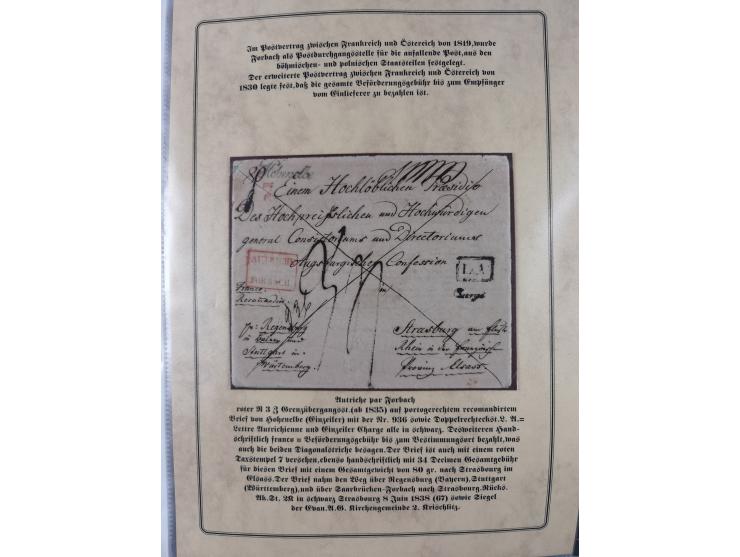 Im Postvertrag zwischen Frankreich und Östereich von 1819,wurde
Forbach als Postdurchgangsstelle für die anfallende Post,aus den
böhmischen- und polnischen Staatsteilen festgelegt.
Der erweiterte Postvertrag zwischen Frankreich und Östereich von
1830 legte fest,daß die gesamte Beförderungsgebühr bis zum Empfänger
vom Einlieferer zu bezahlen ist.
Hohenelbe
Einem Hochlöblichen Præsidio
Des Hochpreißlichen und Hochwürdigen
general Consistoriums und Directoriums
Augsburgischer Confession
L.A
in
Charge
Franco
Recomandirt
Strasburg am Fluße
pr: Regensburg
Rhein in der französischen
Stuttgart in
Provinz Alsass.
Würtemberg.
Autriche par Forbach
roter R 3 Z Grenzübergangsst.(ab 1835) auf portogerechtem recomandirtem
Brief von Hohenelbe (Einzeiler) mit der Nr. 936 sowie Doppelrechteckst.L. A.=
Lettre Autrichienne und Einzeiler Charge alle in schwarz. Desweiteren Hand-
schriftlich franco = Beförderungsgebühr bis zum Bestimmungsort bezahlt,was
auch die beiden Diagonalstriche besagen.Der Brief ist auch mit einem roten
Taxstempel 7 versehen,ebenso handschriftlich mit 34 Decimen Gesamtgebühr
für diesen Brief mit einem Gesamtgewicht von 80 gr. nach Strasbourg im
Elsass.Der Brief nahm den Weg über Regensburg (Bayern),Stuttgart
(Württemberg),und über Saarbrücken-Forbach nach Strasbourg.Rücks.
Ab.St. 2K in schwarz Strasbourg 8 Juin 1838 (67) sowie Siegel
der Evan.A.G. Kirchengemeinde 2. Krischlitz.